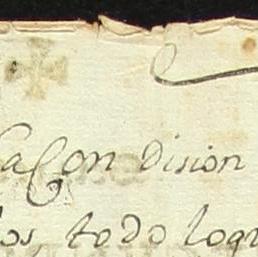 Con Dision
los, todo loqu